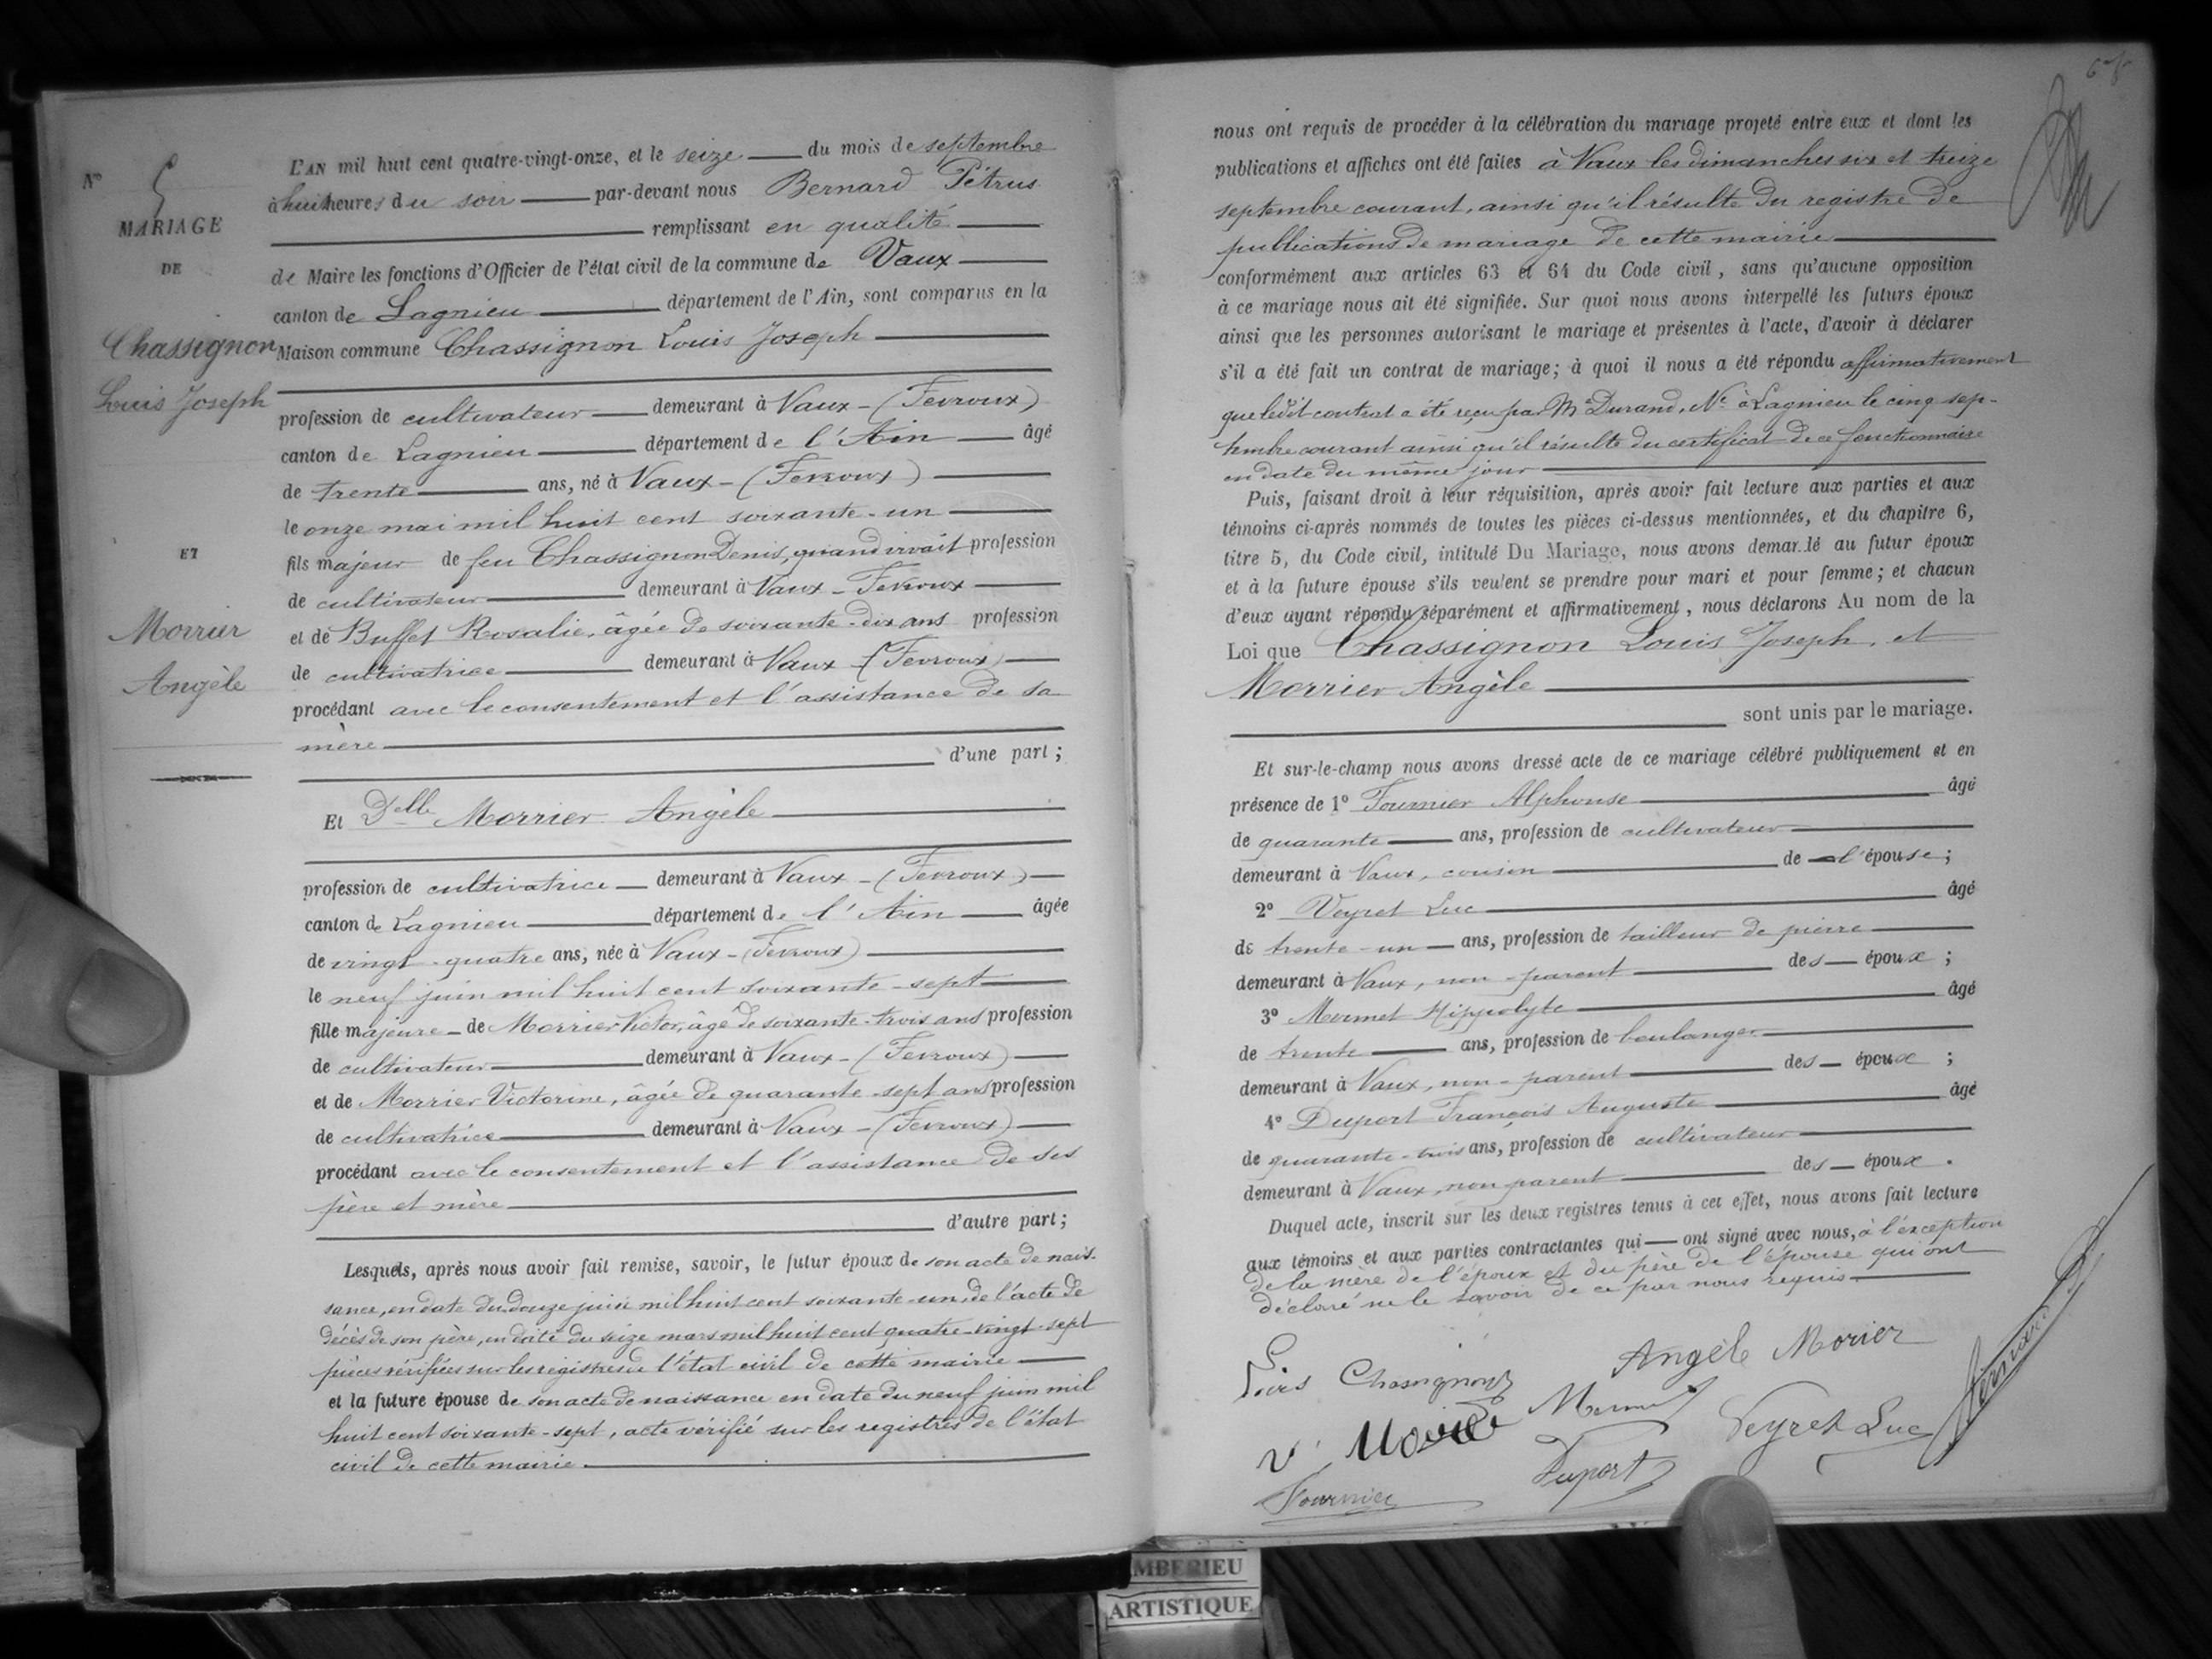 N° 5
MARIAGE
DE
Chassignon
Louis Joseph
ET
Morrier
Angèle
L'AN mil huit cent quatre-vingt-onze, et le seize du mois de septembre
à huit heures du soir par-devant nous Bernard Pétrus
remplissant en qualité
de Maire les fonctions d'Officier de l'état civil de la commune de Vaux
canton de Lagnieu département de l'Ain, sont comparus en la
Maison commune Chassignon Louis Joseph
profession de cultivateur demeurant à Vaux - (Fevroux)
canton de Lagnieu département de l'Ain âgé
de trente ans, né à Vaux - (Fevroux)
le onze mai mil huit cent soixante-un
fils majeur de feu Chassignon Denis, quand vivait profession
de cultivateur demeurant à Vaux - Fevroux
et de Buffet Rosalie, âgée de soixante-dix ans profession
de cultivatrice demeurant à Vaux - (Fevroux)
procédant avec le consentement et l'assistance de sa
mère
d'une part ;
Et Delle Morrier Angèle
profession de cultivatrice demeurant à Vaux - (Fevroux)
canton de Lagnieu département de l'Ain âgée
de vingt-quatre ans, née à Vaux - (Fevroux)
le neuf juin mil huit cent soixante-sept
fille majeure de Morrier Victor, âgé de soixante-trois ans profession
de cultivateur demeurant à Vaux - (Fevroux)
et de Morrier Victorine, âgée de quarante-sept ans profession
de cultivatrice demeurant à Vaux - (Fevroux)
procédant avec le consentement et l'assistance de ses
père et mère
d'autre part ;
Lesquels, après nous avoir fait remise, savoir, le futur époux de son acte de nais-
sance, en date du douze juin mil huit cent soixante-un, de l'acte de
décès de son père, en date du seize mars mil huit cent quatre-vingt-sept
pièces vérifiées sur les registres de l'état civil de cette mairie
et la future épouse de son acte de naissance en date du neuf juin mil
huit cent soixante-sept, acte vérifié sur les registres de l'état
civil de cette mairie.
nous ont requis de procéder à la célébration du mariage projeté entre eux et dont les
publications et affiches ont été faites à Vaux les dimanches six et treize
septembre courant, ainsi qu'il résulte du registre de
publications de mariage de cette mairie
conformément aux articles 63 et 64 du Code civil, sans qu'aucune opposition
à ce mariage nous ait été signifiée. Sur quoi nous avons interpellé les futurs époux
ainsi que les personnes autorisant le mariage et présentes à l'acte, d'avoir à déclarer
s'il a été fait un contrat de mariage ; à quoi il nous a été répondu affirmativement
que ledit contrat a été reçu par Me Durand, Nre à Lagnieu le cinq sep-
tembre courant ainsi qu'il résulte du certificat de ce fonctionnaire
en date du même jour
Puis, faisant droit à leur réquisition, après avoir fait lecture aux parties et aux
témoins ci-après nommés de toutes les pièces ci-dessus mentionnées, et du chapitre 6,
titre 5, du Code civil, intitulé Du Mariage, nous avons demandé au futur époux
et à la future épouse s'ils veulent se prendre pour mari et pour femme ; et chacun
d'eux ayant répondu séparément et affirmativement, nous déclarons Au nom de la
Loi que Chassignon Louis Joseph, et
Morrier Angèle
sont unis par le mariage.
Et sur-le-champ nous avons dressé acte de ce mariage célébré publiquement et en
présence de 1° Fournier Alphonse âgé
de quarante ans, profession de cultivateur
demeurant à Vaux, cousin de l'épouse ;
2° Veyret Luc âgé
de trente-un ans, profession de tailleur de pierre
demeurant à Vaux, non-parent des époux ;
3° Mermet Hippolyte âgé
de trente ans, profession de boulanger
demeurant à Vaux, non-parent des époux ;
4° Duport François Auguste âgé
de quarante-trois ans, profession de cultivateur
demeurant à Vaux, non parent des époux.
Duquel acte, inscrit sur les deux registres tenus à cet effet, nous avons fait lecture
aux témoins et aux parties contractantes qui ont signé avec nous, à l'exception
de la mère de l'époux et du père de l'épouse qui ont
déclaré ne le savoir de ce par nous requis
Angèle Morier
Veyret Luc
Duport
Fournier
Bernard P
MBERIEU
ARTISTIQUE